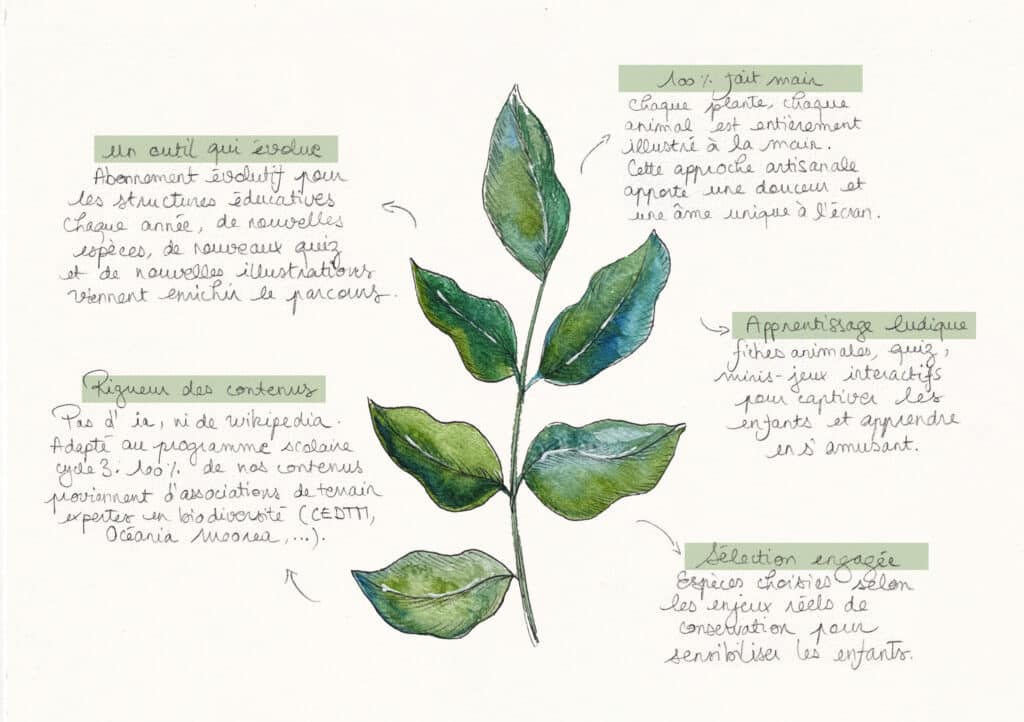 un outil qui évolue
Abonnement évolutif pour
les structures éducatives
Chaque année, de nouvelles
espèces, de nouveaux quiz
et de nouvelles illustrations
viennent enrichir le parcours.
Rigueur des contenus
Pas d'ia, ni de wikipedia.
Adapté au programme scolaire
cycle 3. 100% de nos contenus
proviennent d'associations de terrain
expertes en biodiversité (CEDTM,
Océania Moorea,...).
100% fait main
Chaque plante, chaque
animal est entièrement
illustré à la main.
Cette approche artisanale
apporte une douceur et
une âme unique à l'écran.
Apprentissage ludique
fiches animales, quiz,
minis-jeux interactifs
pour captiver les
enfants et apprendre
en s'amusant.
Sélection engagée
Espèces choisies selon
les enjeux réels de
conservation pour
sensibiliser les enfants.